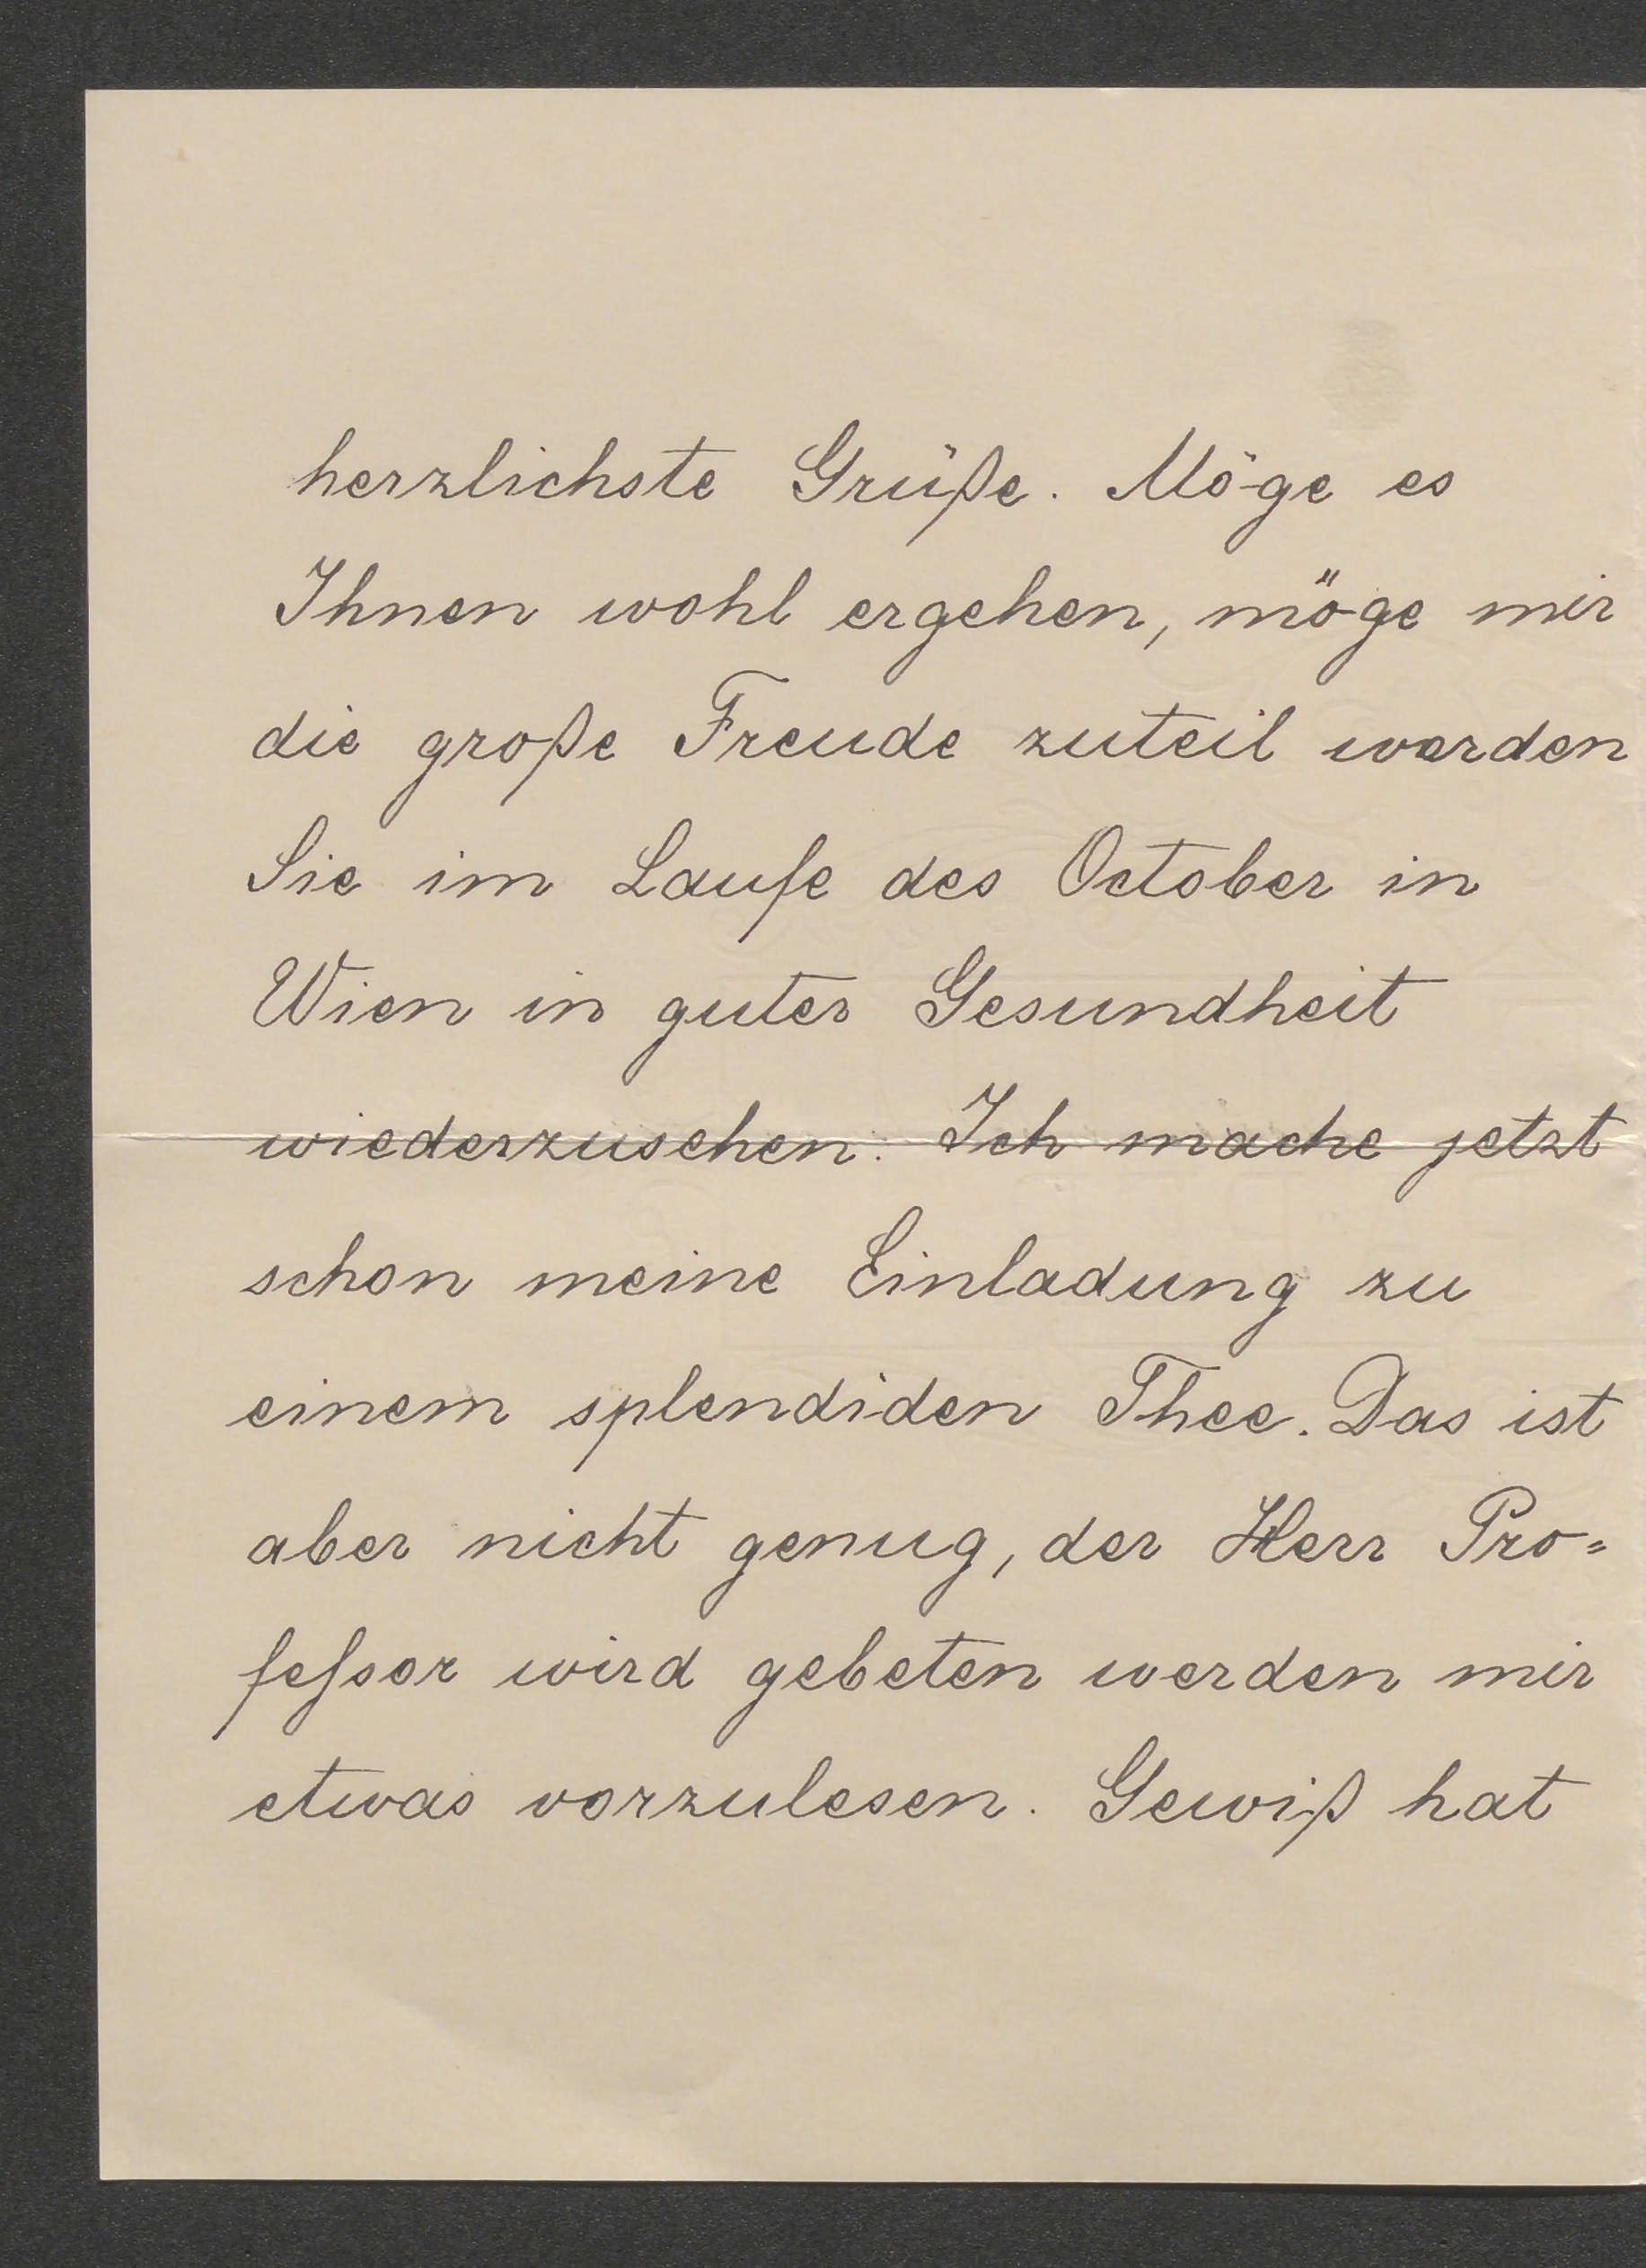 herzlichste Grüße. Möge es
Ihnen wohl ergehen, möge mir
die große Freude zuteil werden
Sie im Laufe des October in
Wien in guter Gesundheit
wiederzusehen. Ich mache jetzt
schon meine Einladung zu
einem splendiden Thee. Das ist
aber nicht genug, der Herr Pro=
feſsor wird gebeten werden mir
etwas vorzulesen. Gewiß hat